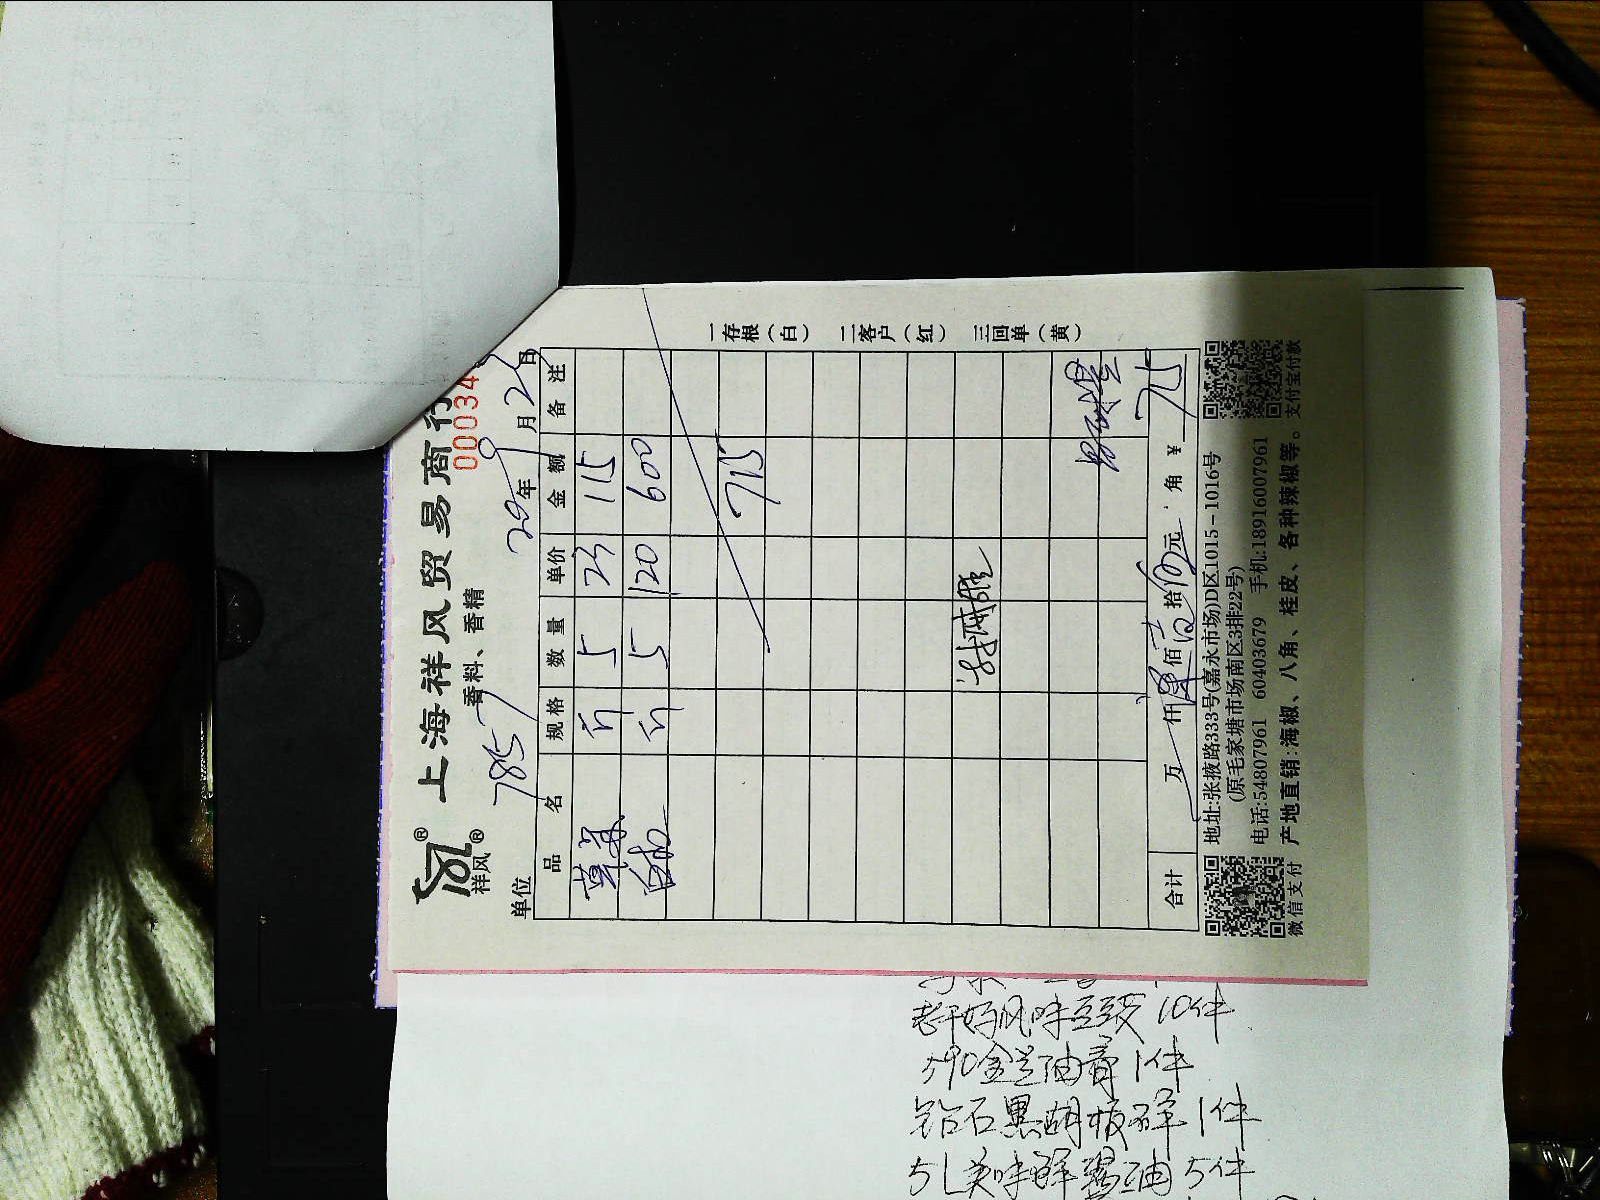 上海祥风贸易商行
祥风
香料、香精
00034
单位 785
20 年 9 月 2 日
品名 规格 数量 单价 金额 备注
草果 斤 5 23 115
斤 5 120 600
715
合计 万 仟 佰 拾 元 角 ¥ 715
地址:张掖路333号(嘉永市场)D区1015-1016号
(原毛家塘市场南区3排22号)
电话:54807961 60403679 手机:18916007961
产地直销:海椒、八角、桂皮、各种辣椒等。
微信支付
支付宝付款
一存根(白) 二客户(红) 三回单(黄)
老干妈风味豆豉 10件
590金兰油膏 1件
钻石黑胡椒碎 1件
5L美味鲜酱油 5件